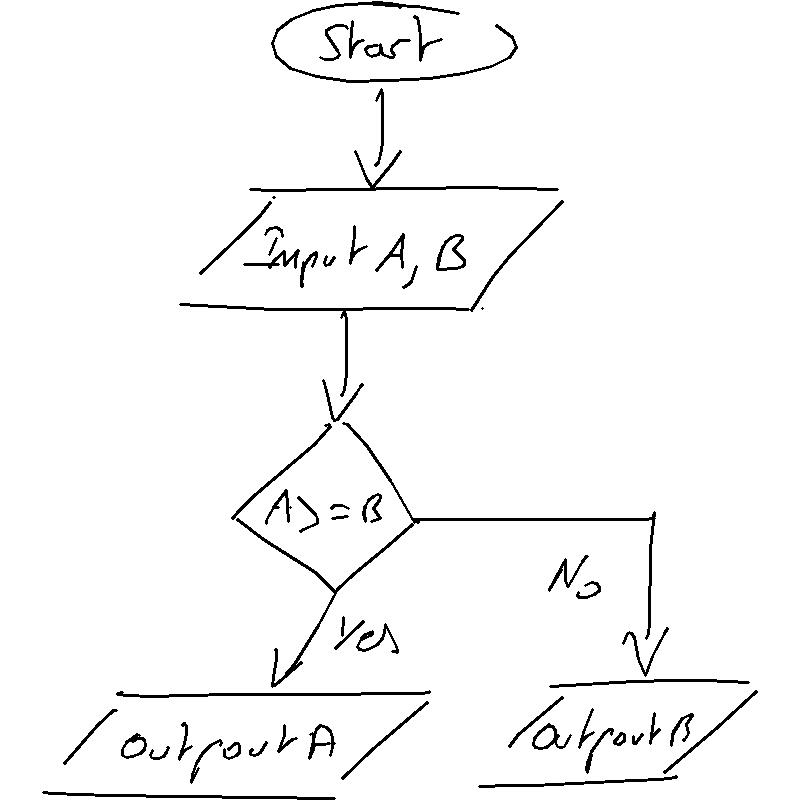 Start
Input A, B
A>=B
No
Yes
Output A
Output B